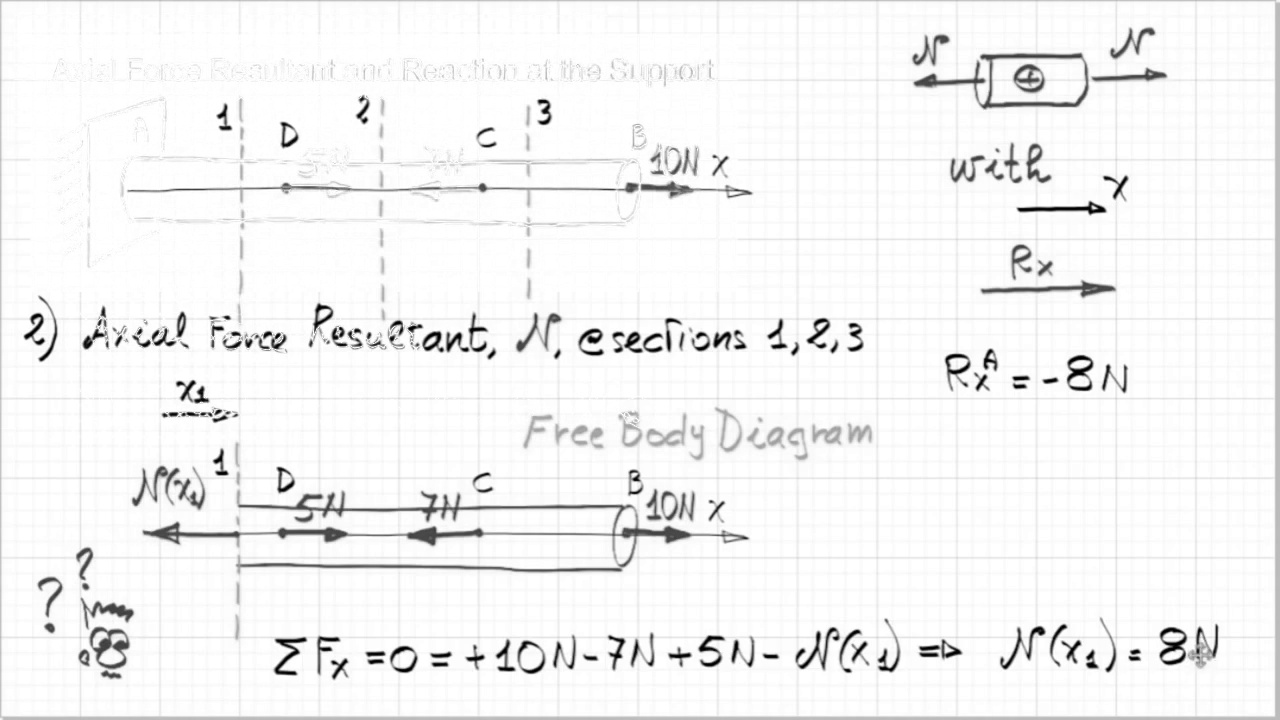 Axial Force Resultant and Reaction at the Support
N N
1 2 3
A D C B
5N 7N 10N x
with
x
Rx
2) Axial Force Resultant, N, @sections 1,2,3
RxA = -8N
x1
Free Body Diagram
1
N(x1) D 5N 7N C B 10N x
?
?
ΣFx = 0 = +10N - 7N + 5N - N(x1) => N(x1) = 8N